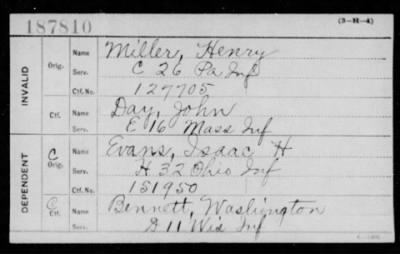 187810 (3-H-4)
INVALID Orig. Name Miller, Henry
Serv. C 26 Pa Inf
Ctf. No. 127705
Ctf. Name Day, John
Serv. E 16 Mass Inf
DEPENDENT C Orig. Name Evans, Isaac H
Serv. H 32 Ohio Inf
Ctf. No. 151950
C Ctf. Name Bennett, Washington
Serv. D 11 Wis Inf